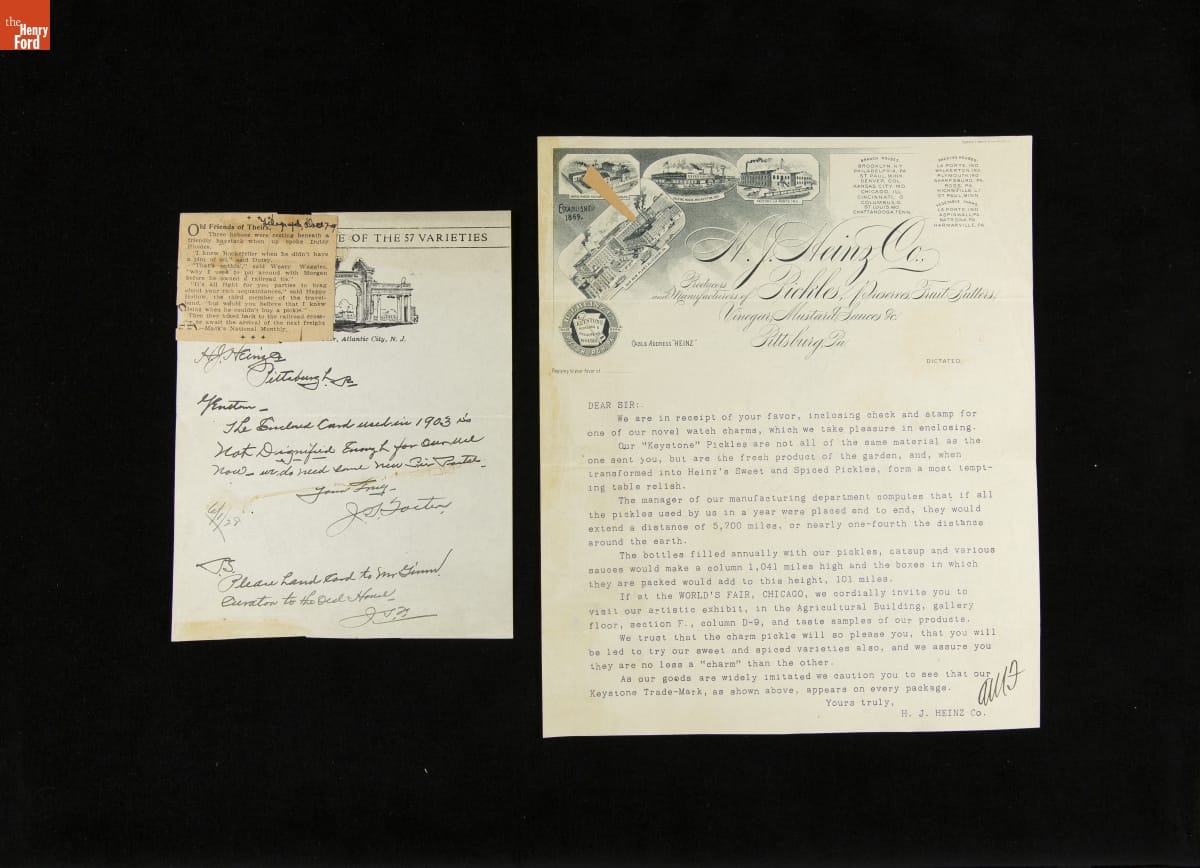 the
Henry
Ford
Old Friends of Theirs.
Three hoboes were resting beneath a
friendly haystack when up spoke Dusty
Rhodes.
"I knew Rockefeller when he didn't have
a pint of oil," said Dusty.
said Weary Waggles,
"why I used to pal around with Morgan
before he owned a railroad tie."
"It's all right for you parties to brag
about your rich acquaintances," said Happy
Hollow, the third member of the travel-
"but would you believe that I knew
Heinz when he couldn't buy a pickle."
Then they hiked back to the railroad cross-
to await the arrival of the next freight
—Mark's National Monthly.
E OF THE 57 VARIETIES
Atlantic City, N. J.
H J Heinz Co
Pittsburgh Pa
The Enclosed Card used in 1903 is
Not Dignified Enough for Our use
Now - we do need some new Pier Postals
Yours Truly
J. S. Foster
6/1/29
P.S.
Please hand Card to Mr Ginn
Curator to the Old House
J S F
ESTABLISHED
1869.
BRANCH HOUSES.
BROOKLYN, N.Y.
PHILADELPHIA, PA.
ST PAUL, MINN.
DENVER, COL.
KANSAS CITY, MO.
CHICAGO, ILL.
CINCINNATI, O.
COLUMBUS, O.
ST LOUIS, MO.
CHATTANOOGA, TENN.
SALTING HOUSES.
LA PORTE, IND.
WALKERTON, IND.
PLYMOUTH, IND.
SHARPSBURG, PA.
HICKSVILLE, L.I.
ST PAUL, MINN.
VEGETABLE FARMS.
LA PORTE, IND.
ASPINWALL, PA.
NATRONA, PA.
HARMARVILLE, PA.
H. J. Heinz Co.,
Producers
and Manufacturers of Pickles, Preserves, Fruit Butters,
Vinegar, Mustard, Sauces &c.
Pittsburg, Pa.
KEYSTONE
CABLE ADDRESS "HEINZ"
DICTATED.
Replying to your favor of
DEAR SIR:
We are in receipt of your favor, inclosing check and stamp for
one of our novel watch charms, which we take pleasure in enclosing.
Our "Keystone" Pickles are not all of the same material as the
one sent you, but are the fresh product of the garden, and, when
transformed into Heinz's Sweet and Spiced Pickles, form a most tempt-
ing table relish.
The manager of our manufacturing department computes that if all
the pickles used by us in a year were placed end to end, they would
extend a distance of 5,700 miles, or nearly one-fourth the distance
around the earth.
The bottles filled annually with our pickles, catsup and various
sauces would make a column 1,041 miles high and the boxes in which
they are packed would add to this height, 101 miles.
If at the WORLD'S FAIR, CHICAGO, we cordially invite you to
visit our artistic exhibit, in the Agricultural Building, gallery
floor, section F., column D-9, and taste samples of our products.
We trust that the charm pickle will so please you, that you will
be led to try our sweet and spiced varieties also, and we assure you
they are no less a "charm" than the other.
As our goods are widely imitated we caution you to see that our
Keystone Trade-Mark, as shown above, appears on every package.
Yours truly,
H. J. HEINZ Co.